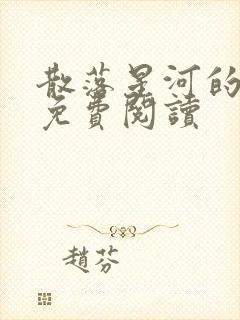 散落星河的
免費閱讀
趙芬